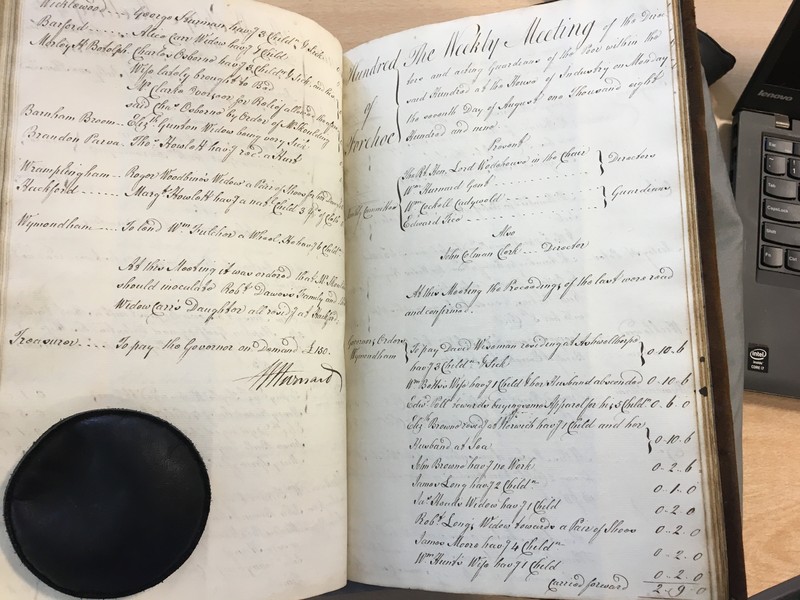 Wicklewood ---- George Shurman hav.g 3 Child.n & Sick
Barford ---- Alice Carr Widow hav.g 4 Child
Morley St Botolph. Charles Osborne hav.g 3 Child.n & Sick and his
Wife lately brought to Bed
Mr Clarke Overseer for Relief allowed the afore
said Cha.s Osborne by Order of Mr
Barnham Broom -- Eliz.th Gunton Widow being very Sick
Brandon Parva -- Tho.s Howlett hav.g rec.d a Hurt
Wramplingham -- Roger Woodbine's Widow a Pair of Shoes for
Hackford ---- Marg.t Howlett hav.g a nat.l Child 3 Y.ds of Cloth
Wymondham ---- To lend W.m Fulcher a Wheel he hav.g 6 Child.n
At this Meeting it was ordered that Mr
should inoculate Rob.t Dawson's Family and
Widow Carr's Daughter all resid.g at Barford.
Treasurer ---- To pay the Governor on Demand £150.
Hundred of Forehoe
The Weekly Meeting of the Direc
tors and acting Guardians of the Poor within the
said Hundred at the House of Industry on Monday
the seventh Day of August one Thousand eight
Hundred and nine.
Present
Weekly Committee
The R.t Hon. Lord Wodehouse in the Chair
W.m Hernard Gent
Directors
W.m Cockell Cudywold
Edward Free
Guardians
Also
John Colman Clark --- Director
At this Meeting the Proceedings of the last were read
and confirmed.
Governor, Orders
Wymondham
To pay David Wiseman residing at Ashwelthorpe
hav.g 3 Child.n & Sick 0-10-6
W.m Betts's Wife hav.g 1 Child & her Husband absconded 0-10-6
Edw.d Poll towards buying some Apparel for he & 5 Child.n 0-6-0
Eliz.th Browne resid.g at Norwich hav.g 1 Child and her
Husband at Sea 0-10-6
John Browne hav.g no Work 0-2-6
James Long hav.g 2 Child.n 0-1-0
Ja.s Hoads Widow hav.g 1 Child 0-2-0
Rob.t Long's Widow towards a Pair of Shoes 0-2-0
James Moore hav.g 4 Child.n 0-2-0
W.m Hunt's Wife hav.g 1 Child 0-2-0
Carried forward 2-9-0
lenovo
Esc
Tab
CapsLock
Shift
Fn
Ctrl
intel
CORE i7